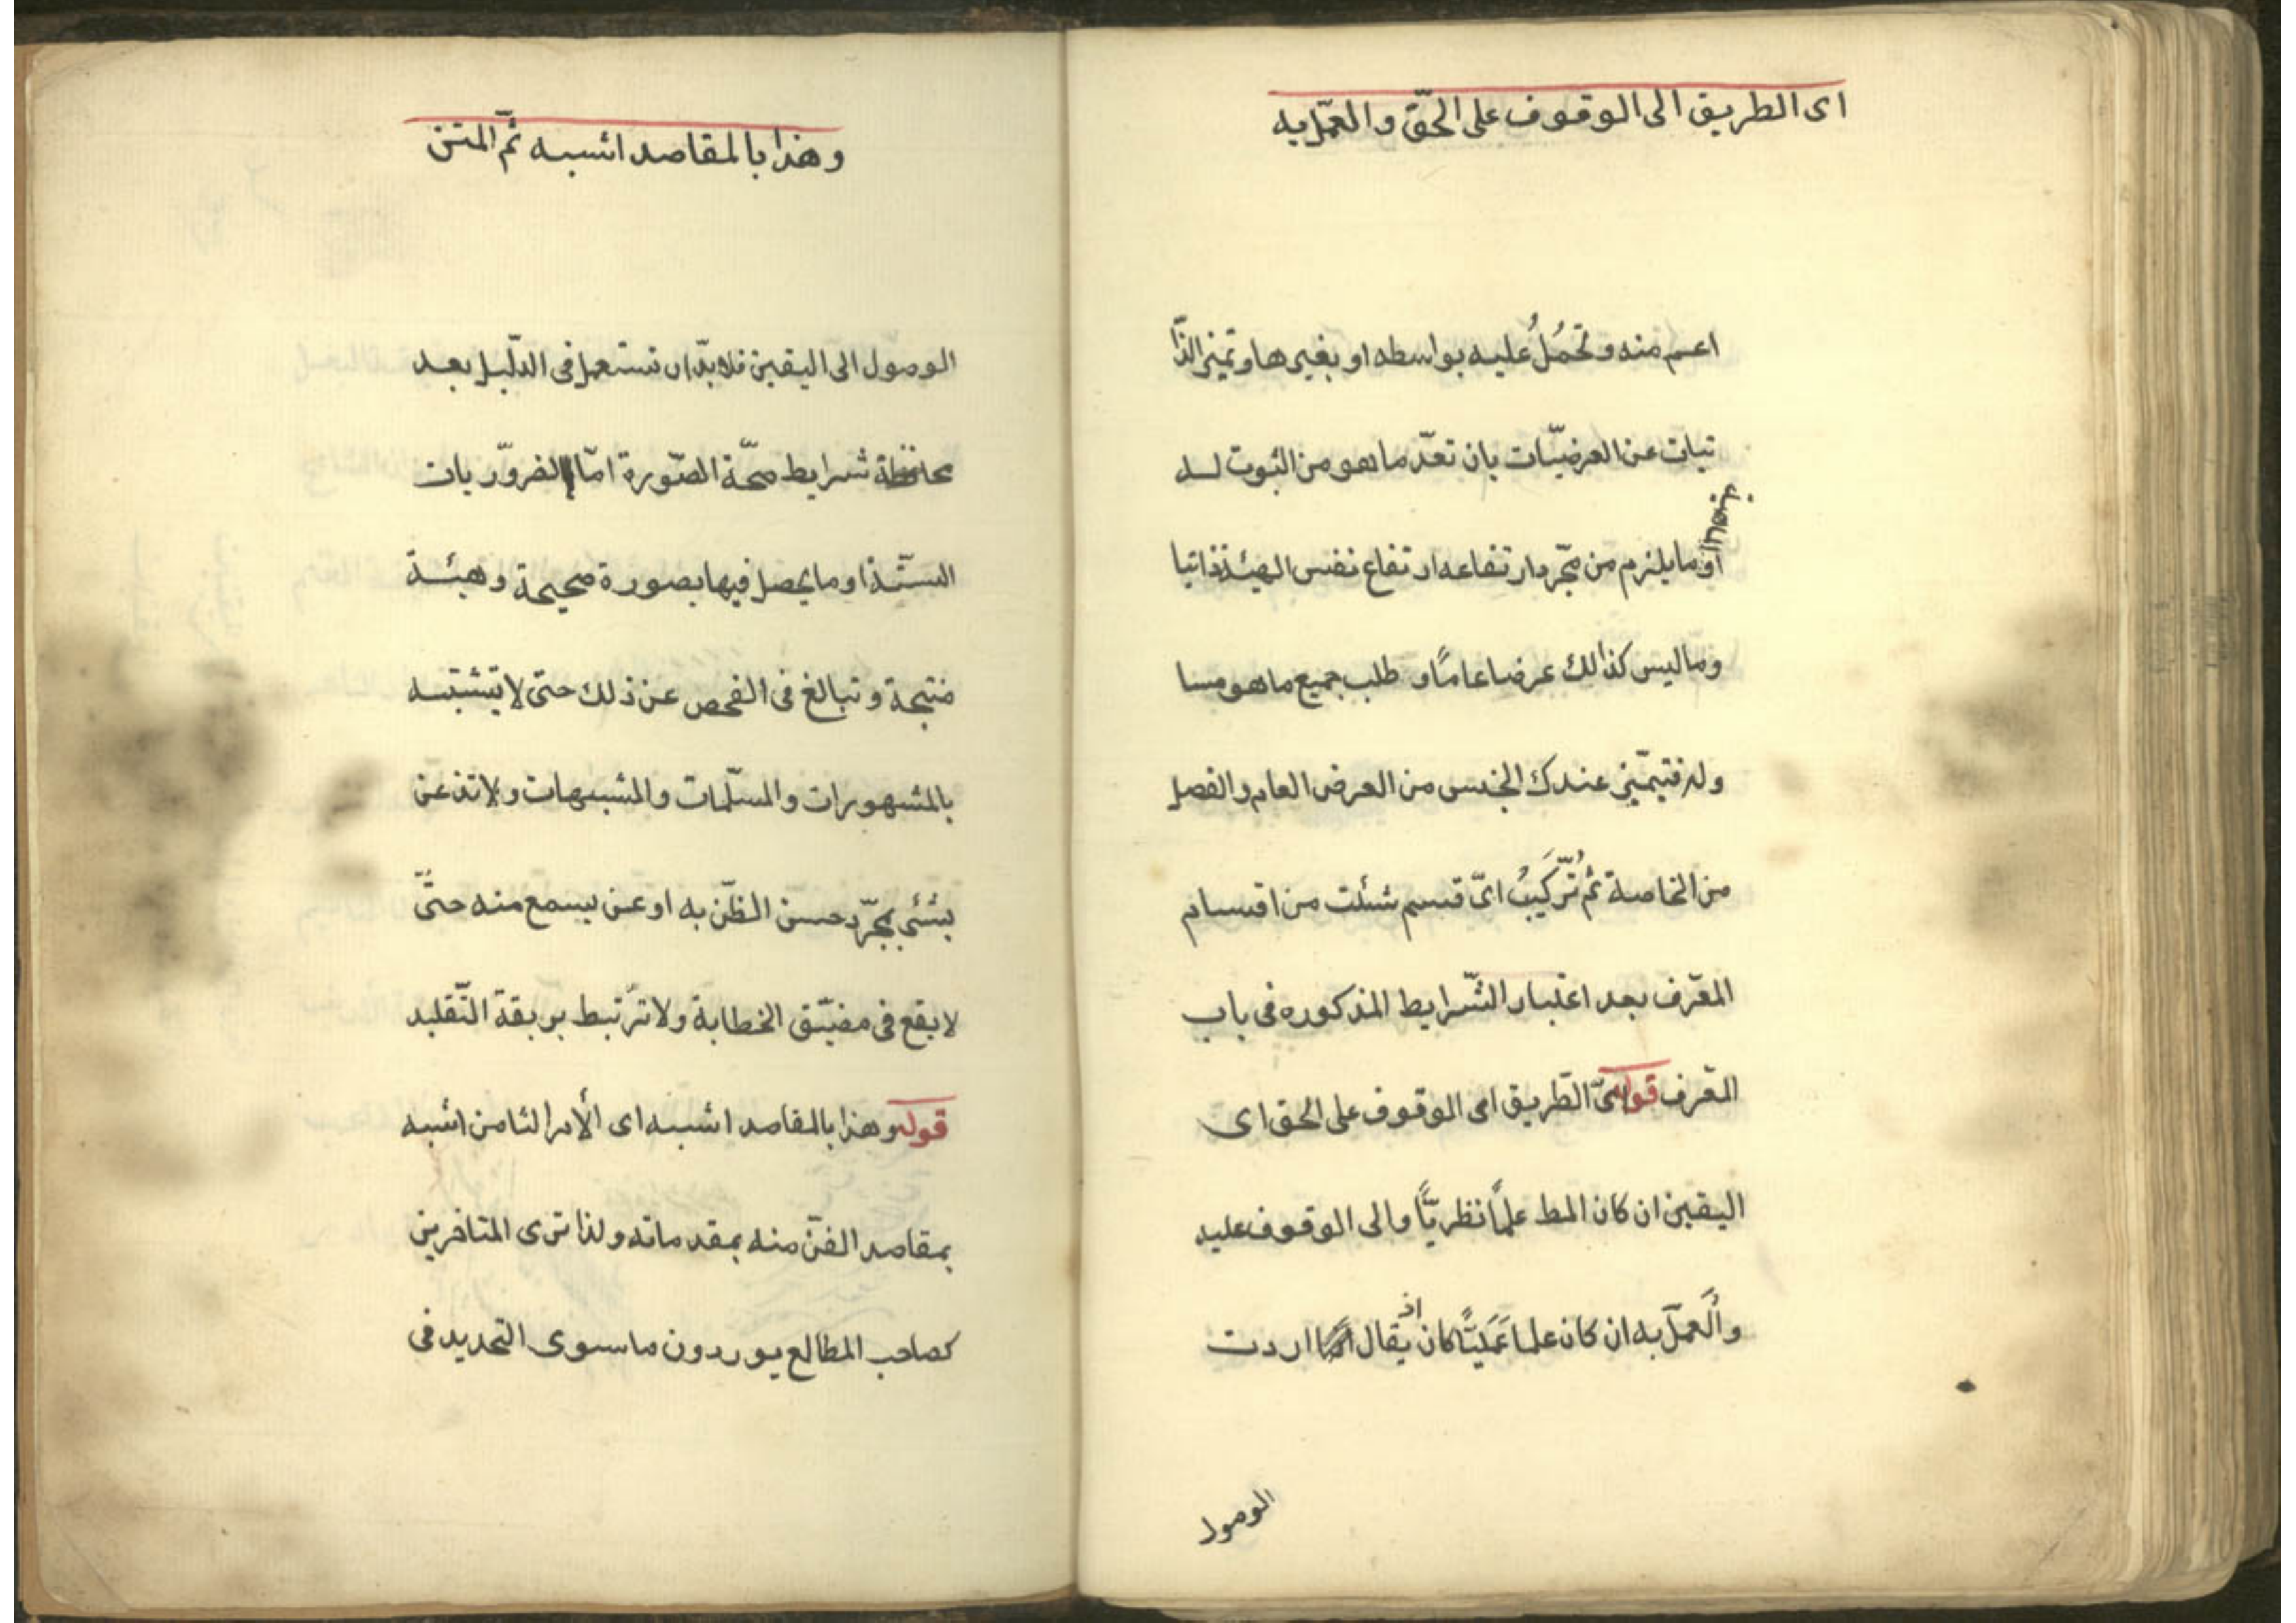 اى الطريق الى الوقوف على الحقّ والعمل به
اعم منه وتحمُلُ عليه بواسطه او بغيرها وتميز الذّا
تيات عن العرضيّات بان تعدّ ما هو من الثبوت له
او ما يلزم من مجّرد ارتفاعه ارتفاع نفس الهيئة ذاتيا
وما ليس كذالك عرضا عامّاً و طلب جميع ما هو مسا
وله فتيميّز عندك الجنس من العرض العام والفصل
من الخاصة ثم تُرّكَيبُ اىّ قسم شئت من اقسام
المعّرف بعد اعتبار الشّرايط المذكوره فى باب
المعّرف قوله اىّ الطّريق اى الوقوف على الحق اى
اليقين ان كان المط علمًا نظريًّا والى الوقوف عليه
والَعملّ به ان كان علما عَمَليًّا كان اذ يقال اردت
الوصول
وهذا بالمقاصد اشبه ثمّ المتن
الوصّول الى اليقين فلا بدّ ان تستعمل فى الدّليل بعد
محافظة شرايط صحّة الصّورة امّا الضروّريات
الستّة او ما يحصل فيها بصورة صحيحة وهيئة
منتجة و تبالغ فى الفحص عن ذلك حتى لا يشتبه
بالمشهورات والمسلّمات والمشبهات ولا تذعنّ
بشئى بمجرّد حسن الظّن به او عن يسمع منه حتّى
لا يقع فى مضيّق الخطابة ولا ترتبط بربقة التّقليد
قوله وهذا بالمقاصد اشبه اى الأمر الثامن اشبه
بمقاصد الفنّ منه بمقدماته ولذا ترى المتاخرين
كصاحب المطالع يوردون ما سوى التحديد فى